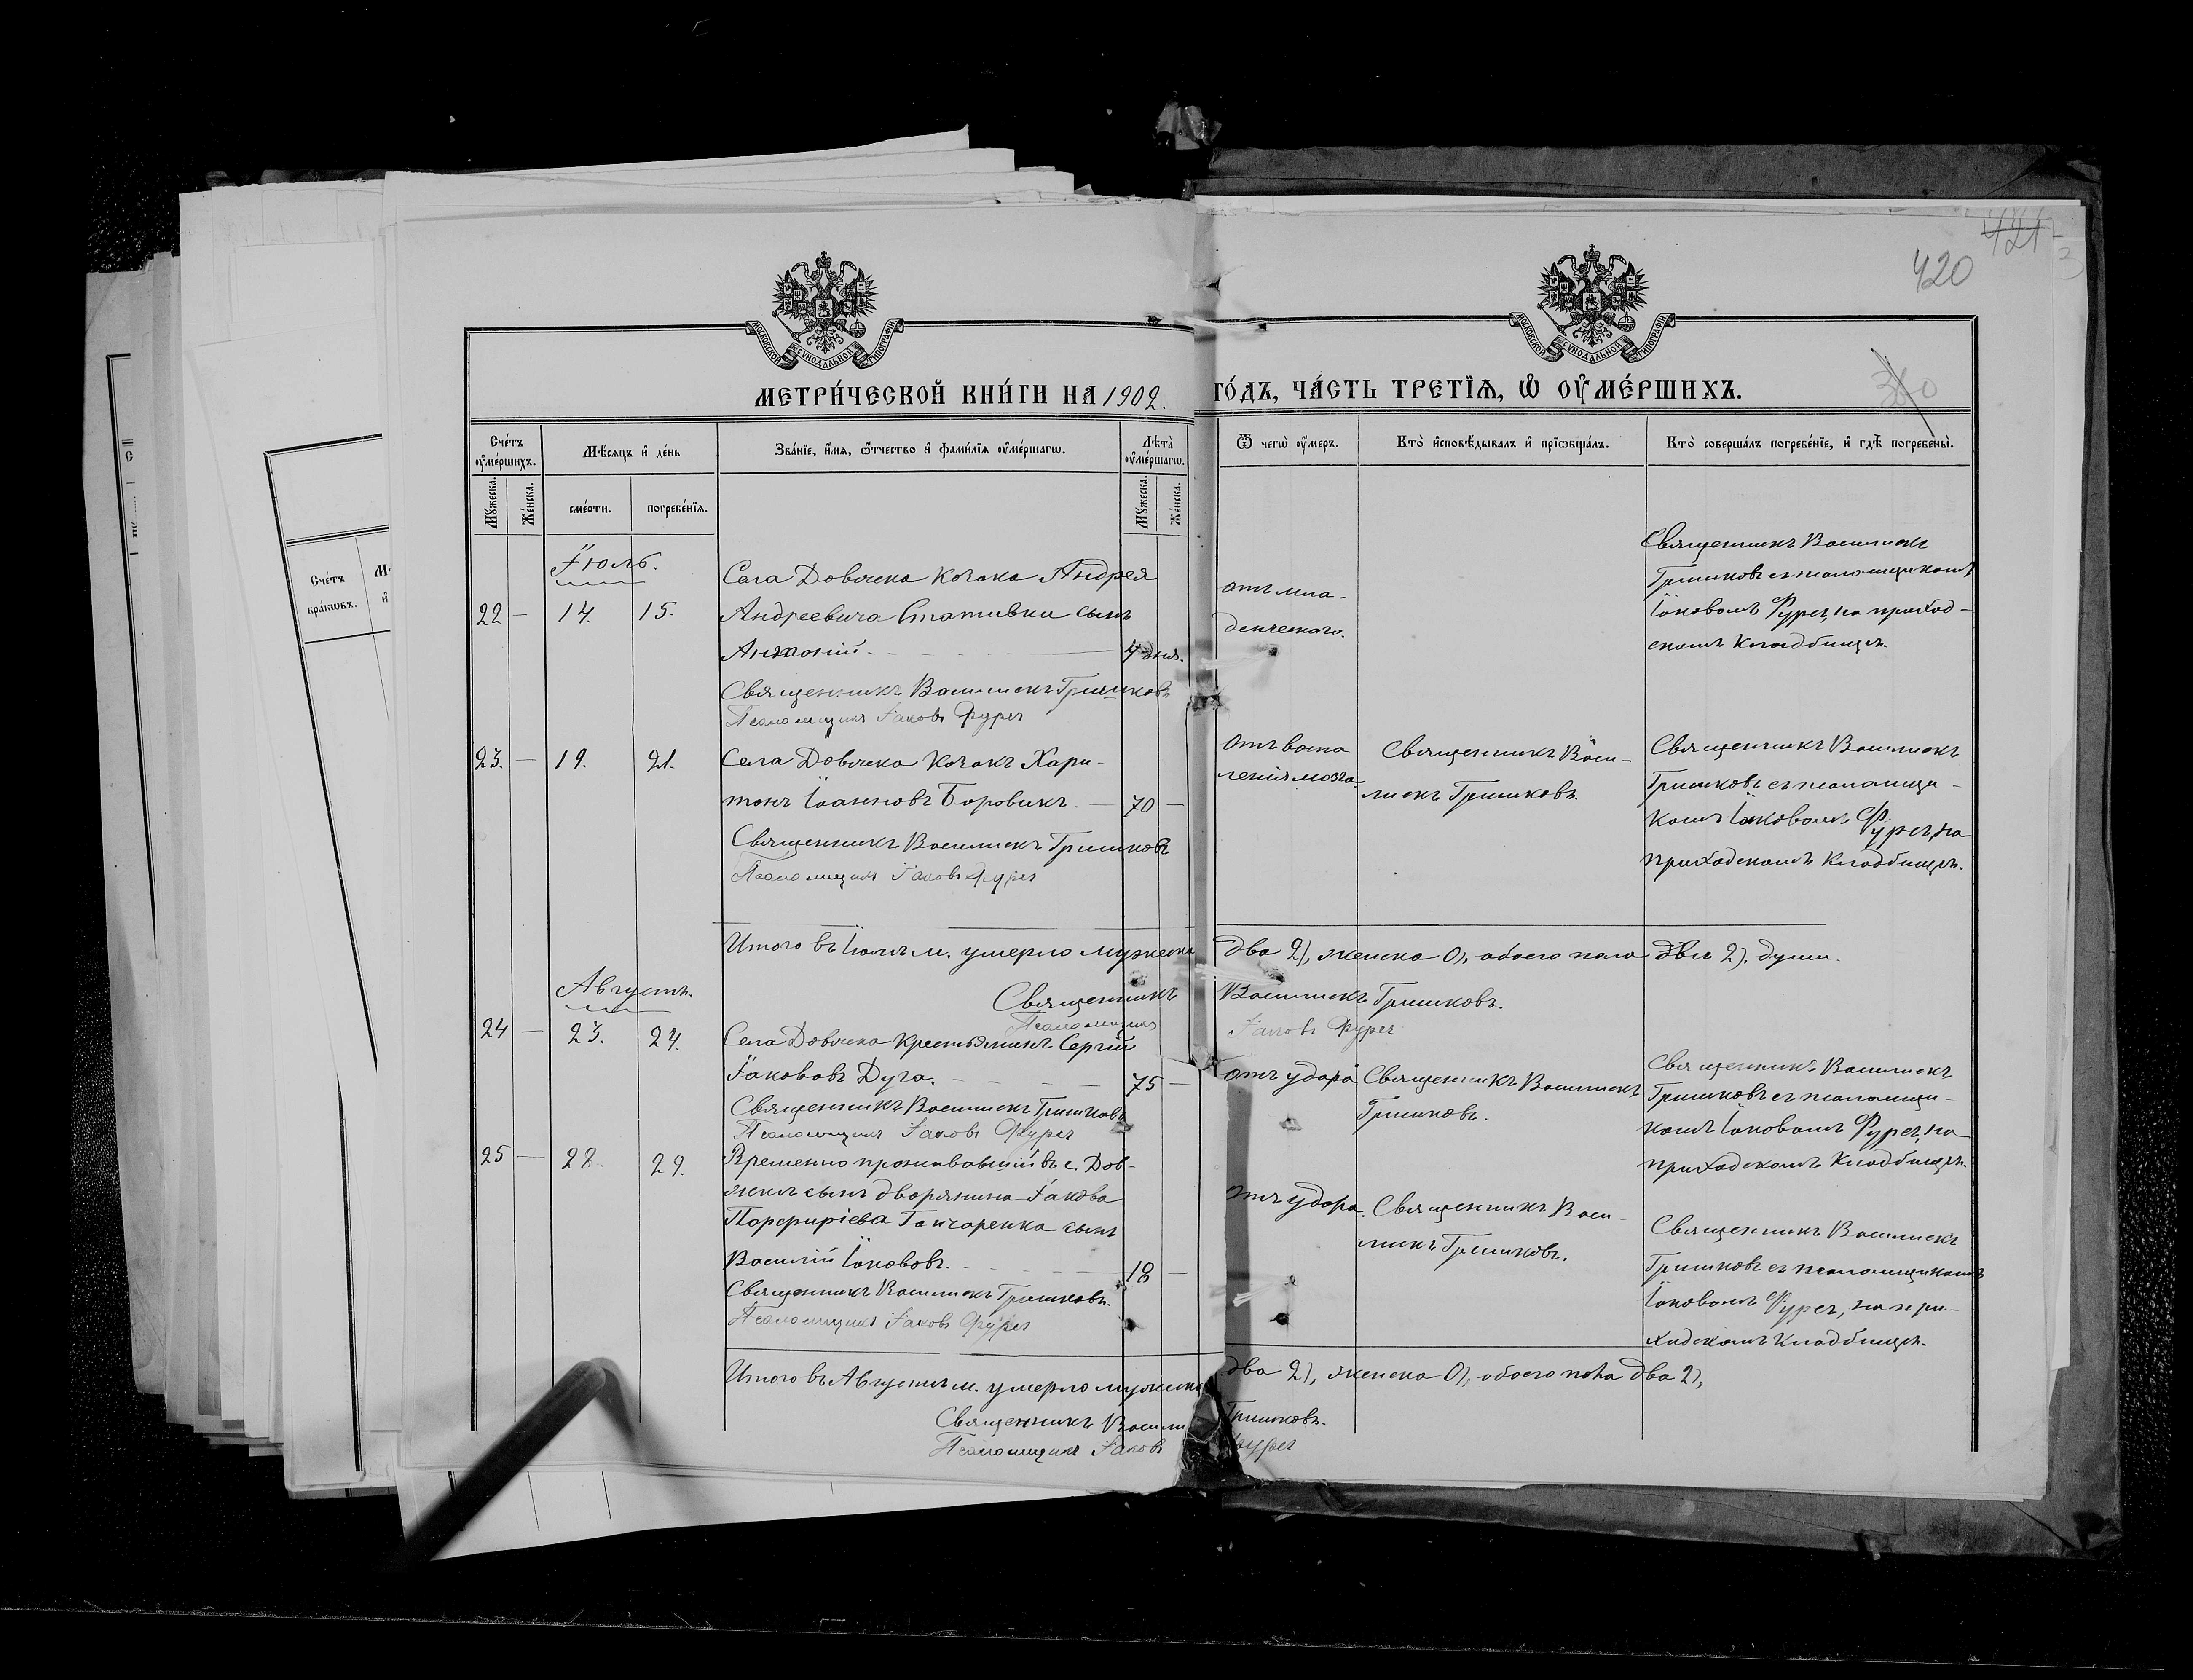 421
420
МОСКОВСКОЙ СѴНОДАЛЬНОЙ ТИПОГРАФІИ
МОСКОВСКОЙ СѴНОДАЛЬНОЙ ТИПОГРАФІИ
МЕТРИ́ЧЕСКОЙ КНИ́ГИ НА 1902.
ГО́ДЪ, ЧА́СТЬ ТРЕТІ́Ѧ, Ѽ ОУ҆МЕ́РШИХЪ.
Сче́тъ оу҆ме́ршихъ.
Мѣ́сѧцъ и҆ де́нь
Зва́нїе, и҆́мѧ, ѻ҆́тчество и҆ фами́лїѧ оу҆ме́ршагѡ.
Лѣ́та оу҆ме́ршагѡ.
Ѿ чегѡ̀ оу҆́меръ.
Кто̀ и҆сповѣ́дывалъ и҆ прїѡбща́лъ.
Кто̀ соверша́лъ погребе́нїе, и҆ гдѣ̀ погребены̀.
Мꙋ́жеска.
Же́нска.
сме́рти.
погребе́нїѧ.
Мꙋ́жеска.
Же́нска.
Іюль.
22 — 14. 15.
Села Довжека козака Андрея
Андреевича Стативки сынъ
Антоній — 4 дня.
Священникъ Василискъ Гришковъ
Псаломщикъ Іаковъ Фурсъ
отъ мла-
денческаго.
Священникъ Василискъ
Гришковъ съ псаломщикомъ
Іаковомъ Фурсъ, на приход-
скомъ кладбищѣ.
23. — 19. 21.
Села Довжека козакъ Хари-
тонъ Іоанновъ Боровикъ. — 70 —
Священникъ Василискъ Гришковъ
Псаломщикъ Іаковъ Фурсъ
отъ воспа
ленія мозга.
Священникъ Васи-
лискъ Гришковъ.
Священникъ Василискъ
Гришковъ съ псаломщи-
комъ Іаковомъ Фурсъ, на
приходскомъ кладбищѣ.
Итого въ Іюлѣ м. умерло мужеска два 2), женска 0), обоего пола двѣ 2). души.
Священникъ Василискъ Гришковъ.
Псаломщикъ Іаковъ Фурсъ
Августъ.
24 — 23. 24.
Села Довжека крестьянинъ Сергій
Іакововъ Дуга. — 75 —
Священникъ Василискъ Гришковъ
Псаломщикъ Іаковъ Фурсъ
отъ удара
Священникъ Василискъ
Гришковъ.
Священникъ Василискъ
Гришковъ съ псаломщи-
комъ Іаковомъ Фурсъ, на
приходскомъ кладбищѣ.
25 — 28. 29.
Временно проживавшій въ с. Дов-
жекѣ сынъ дворянина Іакова
Порфиріева Гончаренка сынъ
Василій Іакововъ. — 18 —
Священникъ Василискъ Гришковъ.
Псаломщикъ Іаковъ Фурсъ
отъ удара.
Священникъ Васи-
лискъ Гришковъ.
Священникъ Василискъ
Гришковъ съ псаломщикомъ
Іаковомъ Фурсъ, на при-
ходскомъ кладбищѣ.
Итого въ Августѣ м. умерло мужеска два 2), женска 0), обоего пола два 2),
Священникъ Васили Гришковъ.
Псаломщикъ Іаковъ Фурсъ
Сче́тъ
бра́кѡвъ.